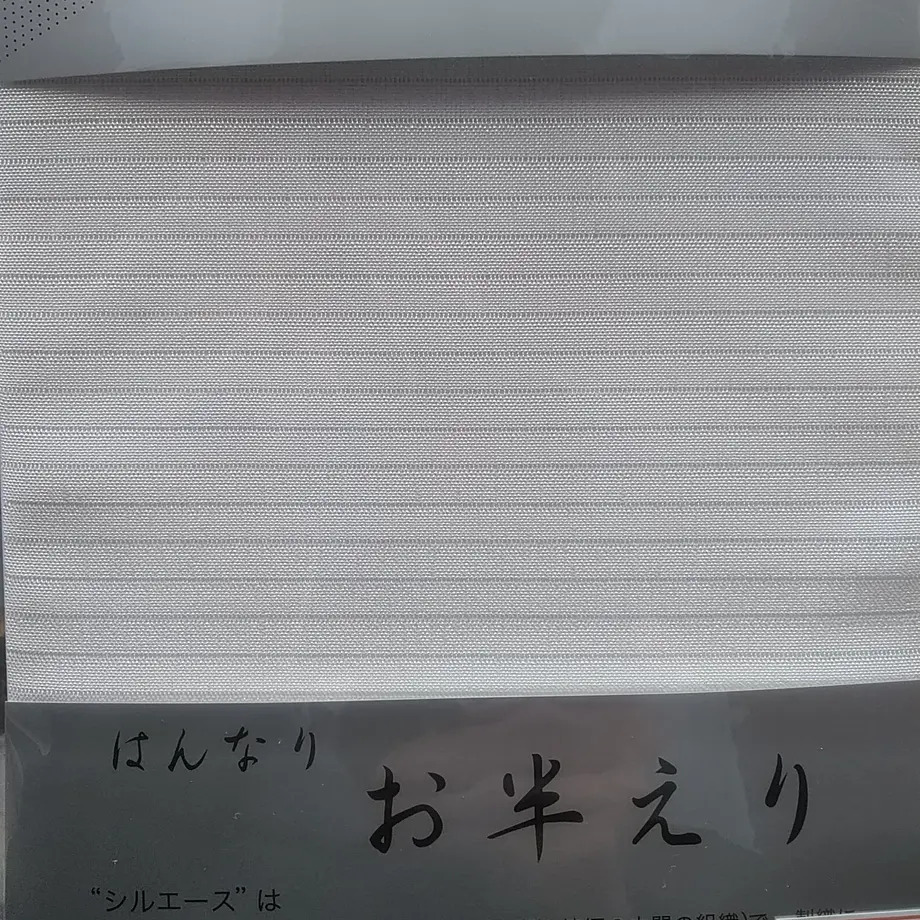 はんなり
お半えり
“シルエース”は